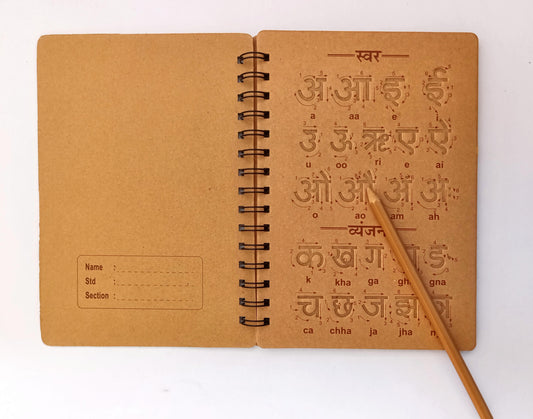 Name :
Std :
Section :
स्वर
अ आ इ ई
a aa e i
उ ऊ ऋ ए ऐ
u oo ri e ai
ओ औ अं अः
o ao am ah
व्यंजन
क ख ग घ ङ
k kha ga gha gna
च छ ज झ ञ
ca chha ja jha